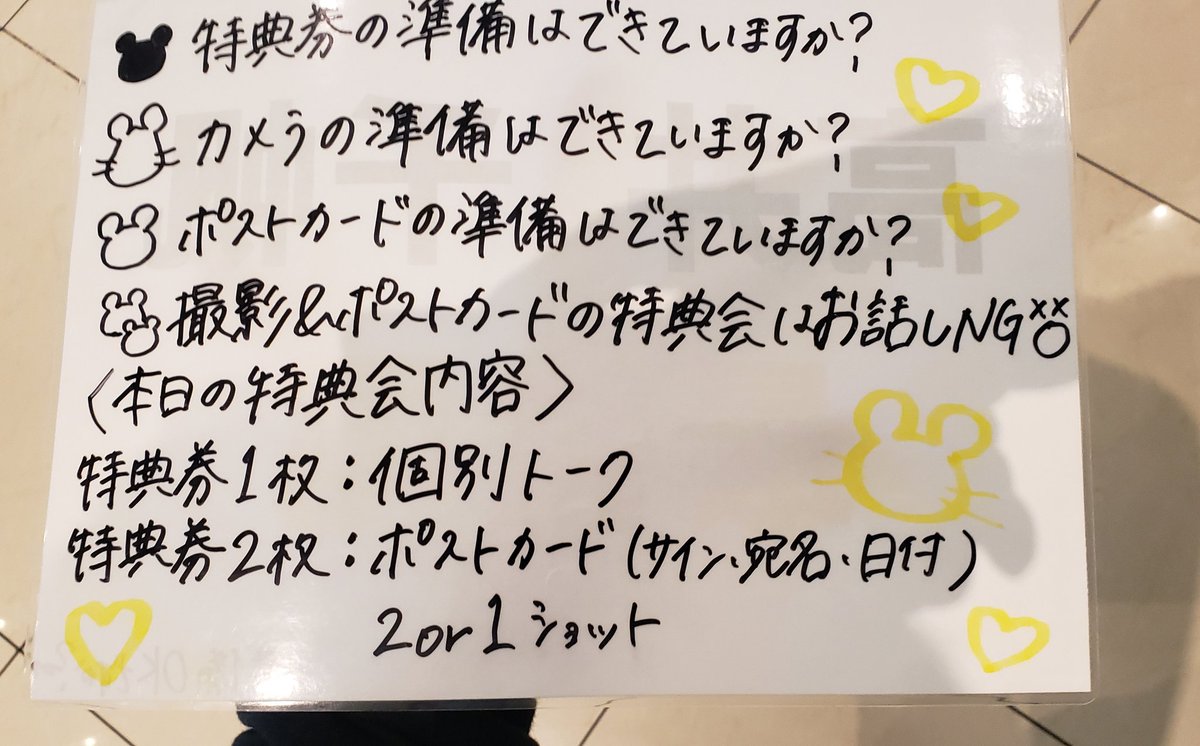 特典券の準備はできていますか?
カメラの準備はできていますか?
ポストカードの準備はできていますか?
撮影&ポストカードの特典会はお話しNG××
〈本日の特典会内容〉
特典券1枚:個別トーク
特典券2枚:ポストカード(サイン、宛名、日付)
2or1ショット